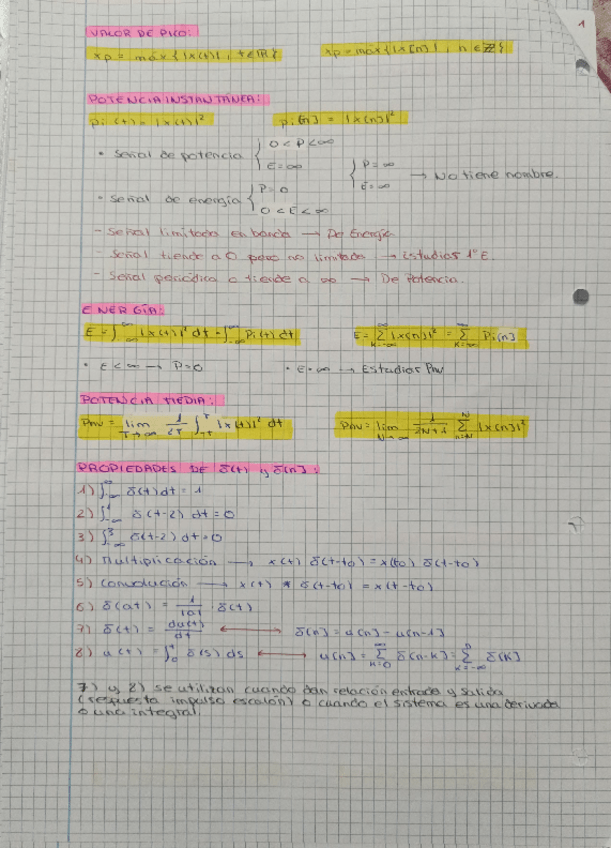 1
VALOR DE PICO:
xp = máx {|x(t)|, t∈ℝ} xp = máx {|x[n]|, n∈ℤ}
POTENCIA INSTANTÁNEA:
pi(t) = |x(t)|² pi[n] = |x[n]|²
• Señal de potencia { 0<P<∞
E=∞
{ P=∞
E=∞ → No tiene nombre.
• Señal de energía { P=0
0<E<∞
- Señal limitada en banda → De Energía
- Señal tiende a 0 pero no limitada → Estudias 1º E.
- Señal periódica o tiende a ∞ → De Potencia.
ENERGÍA:
E = ∫_{-∞}^{∞} |x(t)|² dt = ∫_{-∞}^{∞} Pi(t) dt E = Σ_{k=-∞}^{∞} |x[n]|² = Σ_{k=-∞}^{∞} Pi[n]
• E<∞ → P=0 • E=∞ → Estudias Pm
POTENCIA MEDIA:
Pm = lim_{T→∞} 1/2T ∫_{-T}^{T} |x(t)|² dt Pm = lim_{N→∞} 1/2N+1 Σ_{n=-N}^{N} |x[n]|²
PROPIEDADES DE δ(t) y δ[n]:
1) ∫_{-∞}^{∞} δ(t) dt = 1
2) ∫_{-∞}^{1} δ(t-2) dt = 0
3) ∫_{-∞}^{3} δ(t-2) dt = 0
4) Multiplicación → x(t) δ(t-to) = x(to) δ(t-to)
5) Convolución → x(t) * δ(t-to) = x(t-to)
6) δ(at) = 1/|a| · δ(t)
7) δ(t) = du(t)/dt ↔ δ[n] = u[n] - u[n-1]
8) u(t) = ∫_{0}^{t} δ(s) ds ↔ u[n] = Σ_{k=0}^{∞} δ[n-k] = Σ_{k=-∞}^{n} δ[k]
7) y 8) se utilizan cuando dan relación entrada y salida
(respuesta impulso escalón) o cuando el sistema es una derivada
o una integral.